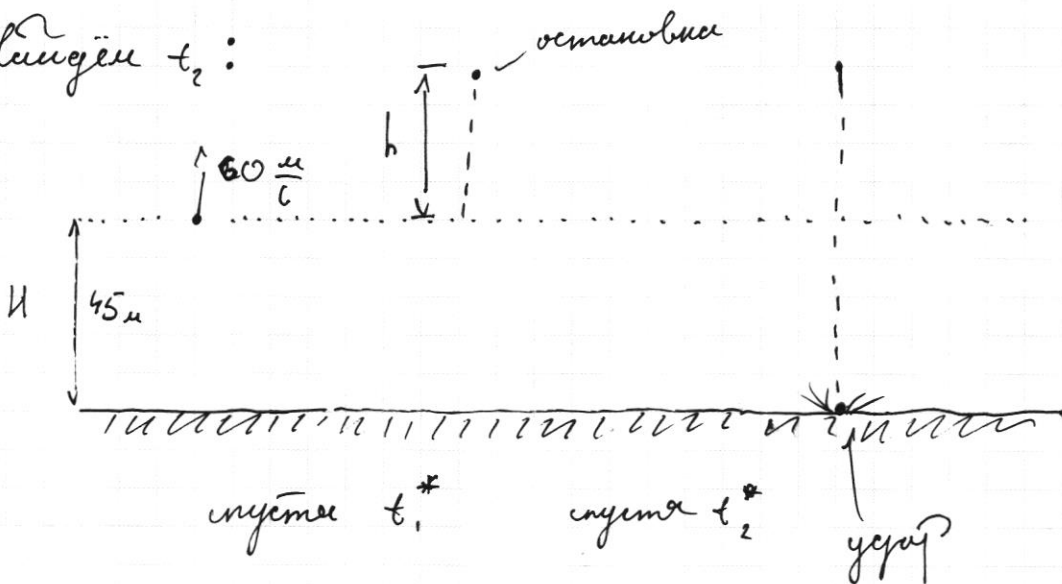 Найдём t₂ :
остановка
h
60 м/с
H
45 м
спустя t₁*
спустя t₂*
удар